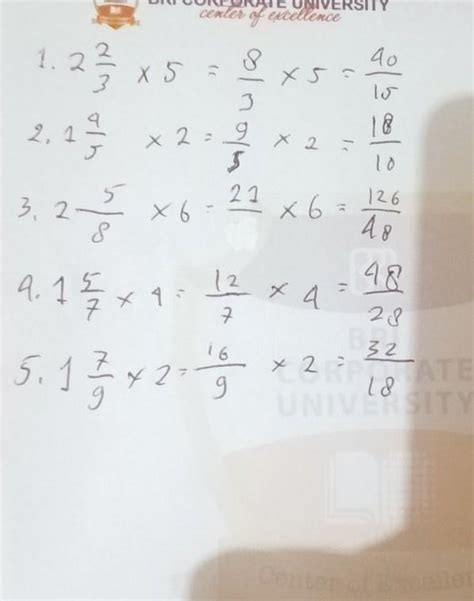 BRI CORPORATE UNIVERSITY
center of excellence
1. 2 2/3 × 5 = 8/3 × 5 = 40/15
2. 1 4/5 × 2 = 9/5 × 2 = 18/10
3. 2 5/8 × 6 = 21/ × 6 = 126/48
4. 1 5/7 × 4 = 12/7 × 4 = 48/28
5. 1 7/9 × 2 = 16/9 × 2 = 32/18
BRI
CORPORATE
UNIVERSITY
Center of Excellen